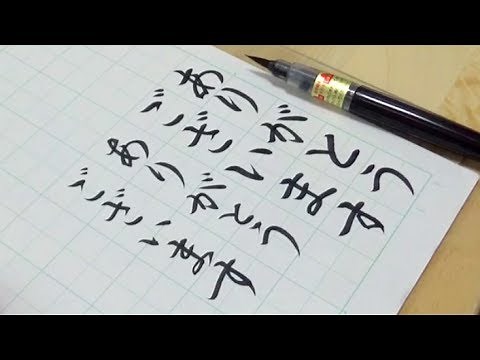 ありがとう
ございます
ありがとう
ございます